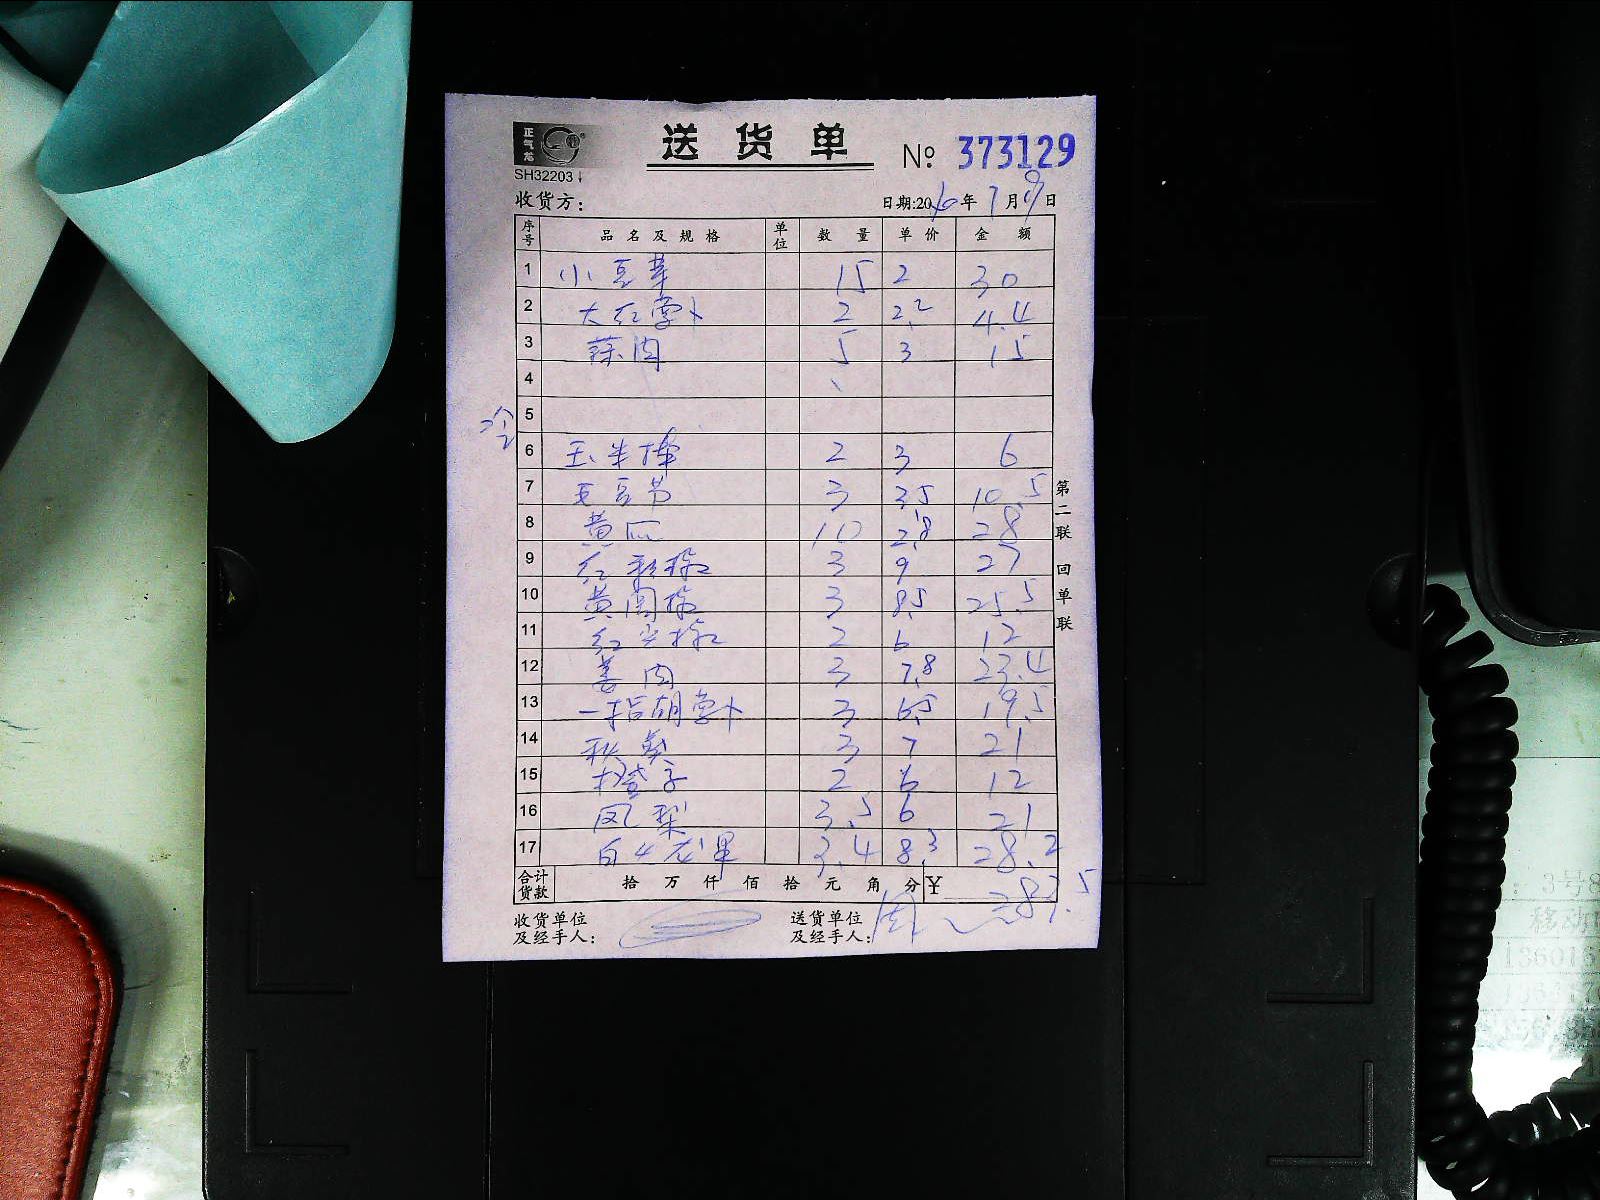 正气芯
SH32203
送货单
№ 373129
收货方:
日期:20 年 7月 9日
序号 品名及规格 单位 数量 单价 金额
1 小豆芽 15 2 30
2 大红萝卜 2 2.2 4.4
3 蒜肉 5 3 15
4
5
冷
6 玉米棒 2 3 6
7 毛豆节 3 3.5 10.5
8 黄瓜 10 2.8 28
9 红彩椒 3 9 27
10 黄圆椒 3 8.5 25.5
11 红尖椒 2 6 12
12 姜肉 3 7.8 23.4
13 一指胡萝卜 3 6.5 19.5
14 秋葵 3 7 21
15 橙子 2 6 12
16 凤梨 3.5 6 21
17 白火龙果 3.4 8.3 28.2
合计货款 拾 万 仟 佰 拾 元 角 分 ¥ 283.5
收货单位及经手人:
送货单位及经手人: 周
第二联 回单联
: 3号8
移动